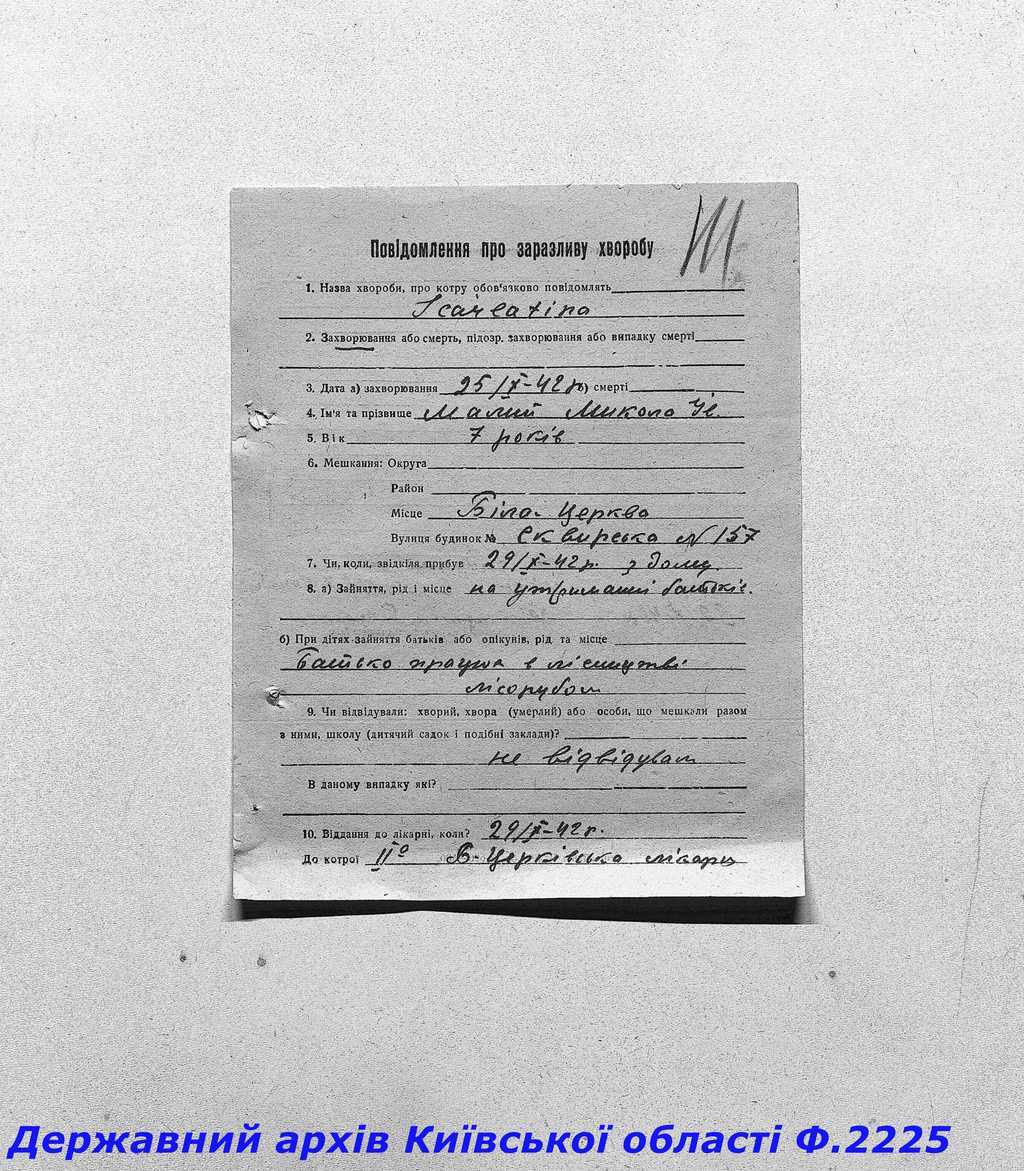 Повідомлення про заразливу хворобу
1. Назва хвороби, про котру обов'язково повідомлять
Scarlatina
2. Захворювання або смерть, підозр. захворювання або випадку смерті
3. Дата а) захворювання 25/X-42 р. б) смерті
4. Ім'я та прізвище Малий Микола
5. Вік 7 років
6. Мешкання: Округа
Район
Місце Біла-Церква
Вулиця будинок № Сквирська N 157
7. Чи, коли, звідкіля прибув 29/X-42 р. з дому.
8. а) Зайняття, рід і місце на утриманні батьків.
б) При дітях-зайняття батьків або опікунів, рід та місце
Батько працює в лісництві
лісорубом
9. Чи відвідували: хворий, хвора (умерлий) або особи, що мешкали разом
з ними, школу (дитячий садок і подібні заклади)?
не відвідував
В даному випадку які?
10. Віддання до лікарні, коли? 29/X-42 г.
До котрої II° Б-Церківська лікарня
Державний архів Київської області Ф.2225